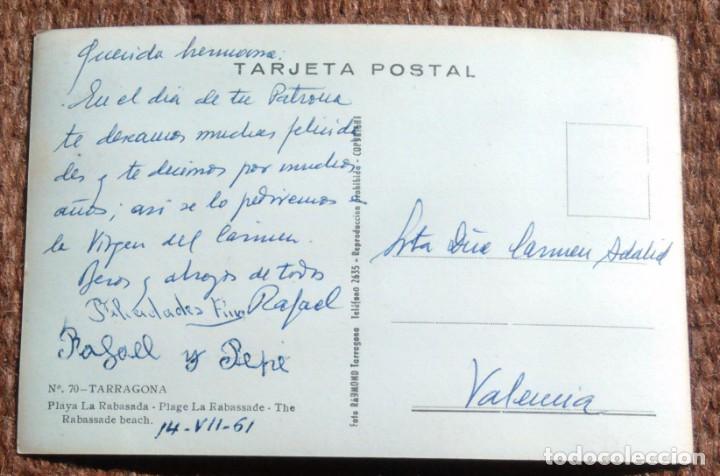 Querida hermana:
TARJETA POSTAL
En el día de tu Patrona
te deseamos muchas felicida
des y te decimos por muchos
años; asi se lo pediremos a
la Virgen del Carmen.
Besos y abrazos de todos
Felicidades Rafael
Rafael y Pepe
Nº. 70-TARRAGONA
Playa La Rabasada - Plage La Rabassade - The
Rabassade beach.
14-VII-61
Foto RAYMOND Tarragona Teléfono 2635 - Reproducción prohibida - COPYRIGHT
Srta Dña Carmen Adalid
Valencia
todocoleccion